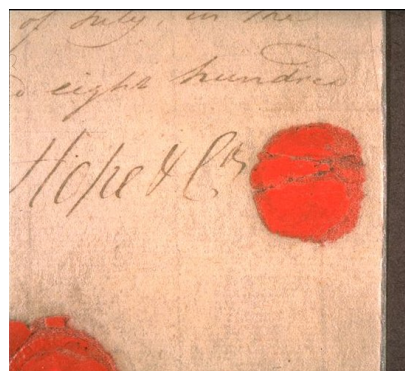 of July, in the
eight hundred
Hope & Co